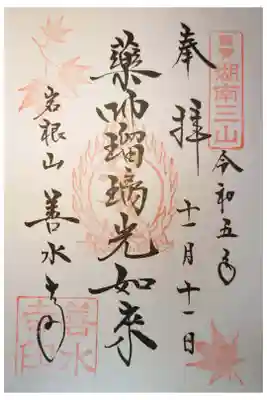 奉拝
湖南三山
令和五年
十一月十一日
薬師瑠璃光如来
岩根山
善水寺
善水寺印